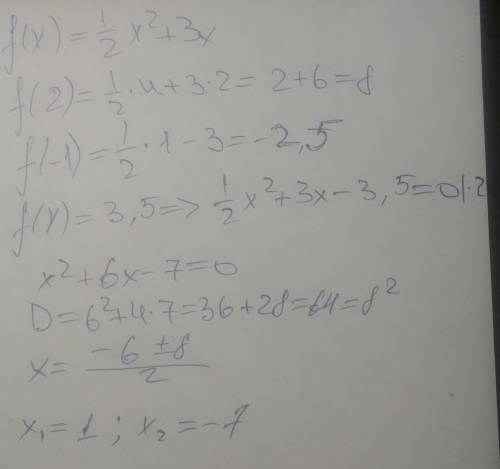 f(x) = 1/2 x² + 3x
f(2) = 1/2 · 4 + 3·2 = 2 + 6 = 8
f(-1) = 1/2 · 1 - 3 = -2,5
f(x) = 3,5 => 1/2 x² + 3x - 3,5 = 0 |·2
x² + 6x - 7 = 0
D = 6² + 4·7 = 36 + 28 = 64 = 8²
x = (-6 ± 8)/2
x₁ = 1 ; x₂ = -7